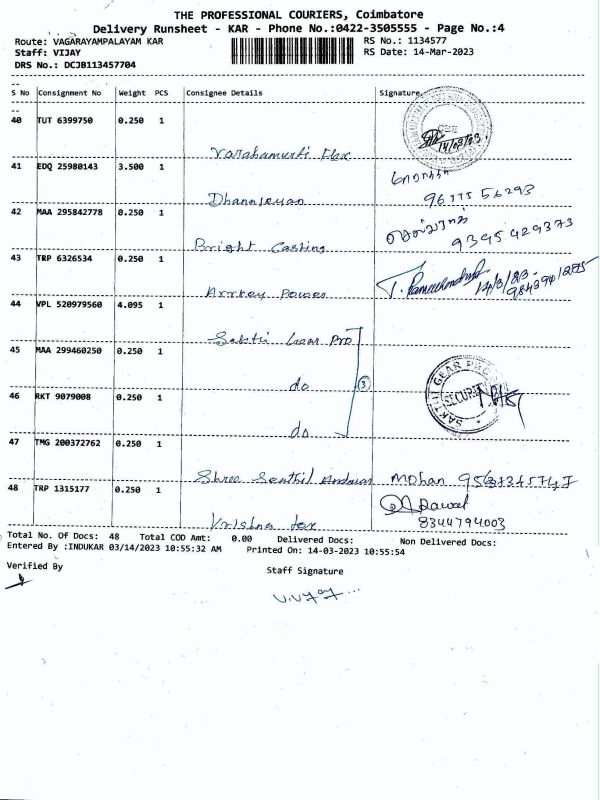 THE PROFESSIONAL COURIERS, Coimbatore
Delivery Runsheet - KAR - Phone No.:0422-3505555 - Page No.:4
Route: VAGARAYAMPALAYAM KAR RS No.: 1134577
Staff: VIJAY RS Date: 14-Mar-2023
DRS No.: DCJB113457704
S No Consignment No Weight PCS Consignee Details Signature
40 TUT 6399750 0.250 1
14/03/23.
Varahamurti Flex
41 EDQ 25980143 3.500 1
Dhananjeyan
42 MAA 295842778 0.250 1
Bright Casting 9345429373
43 TRP 6326534 0.250 1
Power 14/3/23-
44 VPL 520979560 4.095 1
Sakthi Gear Pro
45 MAA 299460250 0.250 1
do 3
SAKTHI GEAR PRO
SECURITY
46 RKT 9079008 0.250 1
do
47 TMG 200372762 0.250 1
Shree Senthil Mohan
48 TRP 1315177 0.250 1
Rawat
Krishna tex 8344794003
Total No. Of Docs: 48 Total COD Amt: 0.00 Delivered Docs: Non Delivered Docs:
Entered By :INDUKAR 03/14/2023 10:55:32 AM Printed On: 14-03-2023 10:55:54
Verified By
Staff Signature